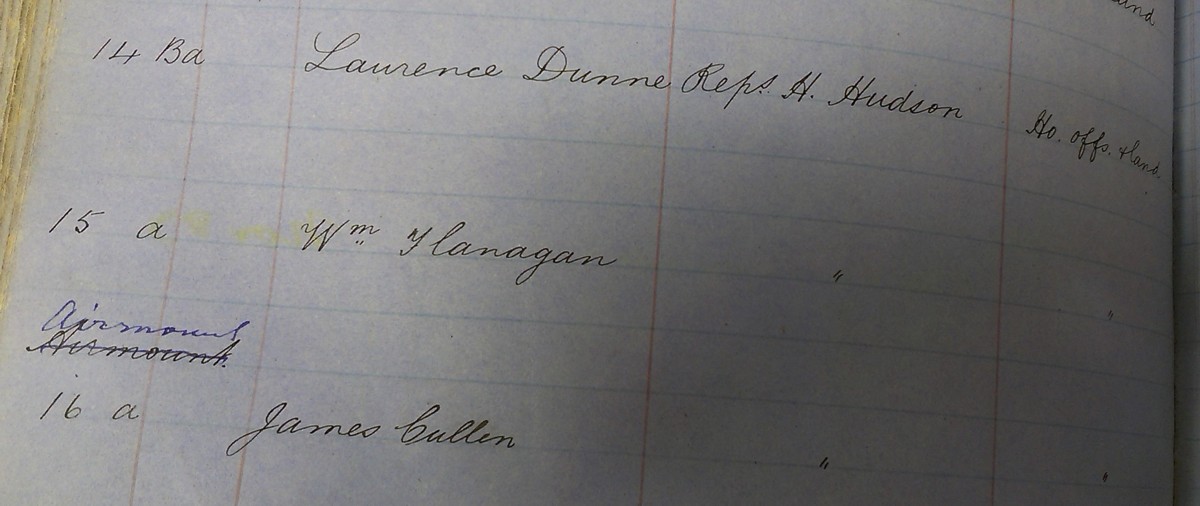 14 Ba Laurence Dunne Reps. H. Hudson Ho. offs. & land.
15 a Wm Flanagan " "
Airmount
Airmount.
16 a James Cullen " "